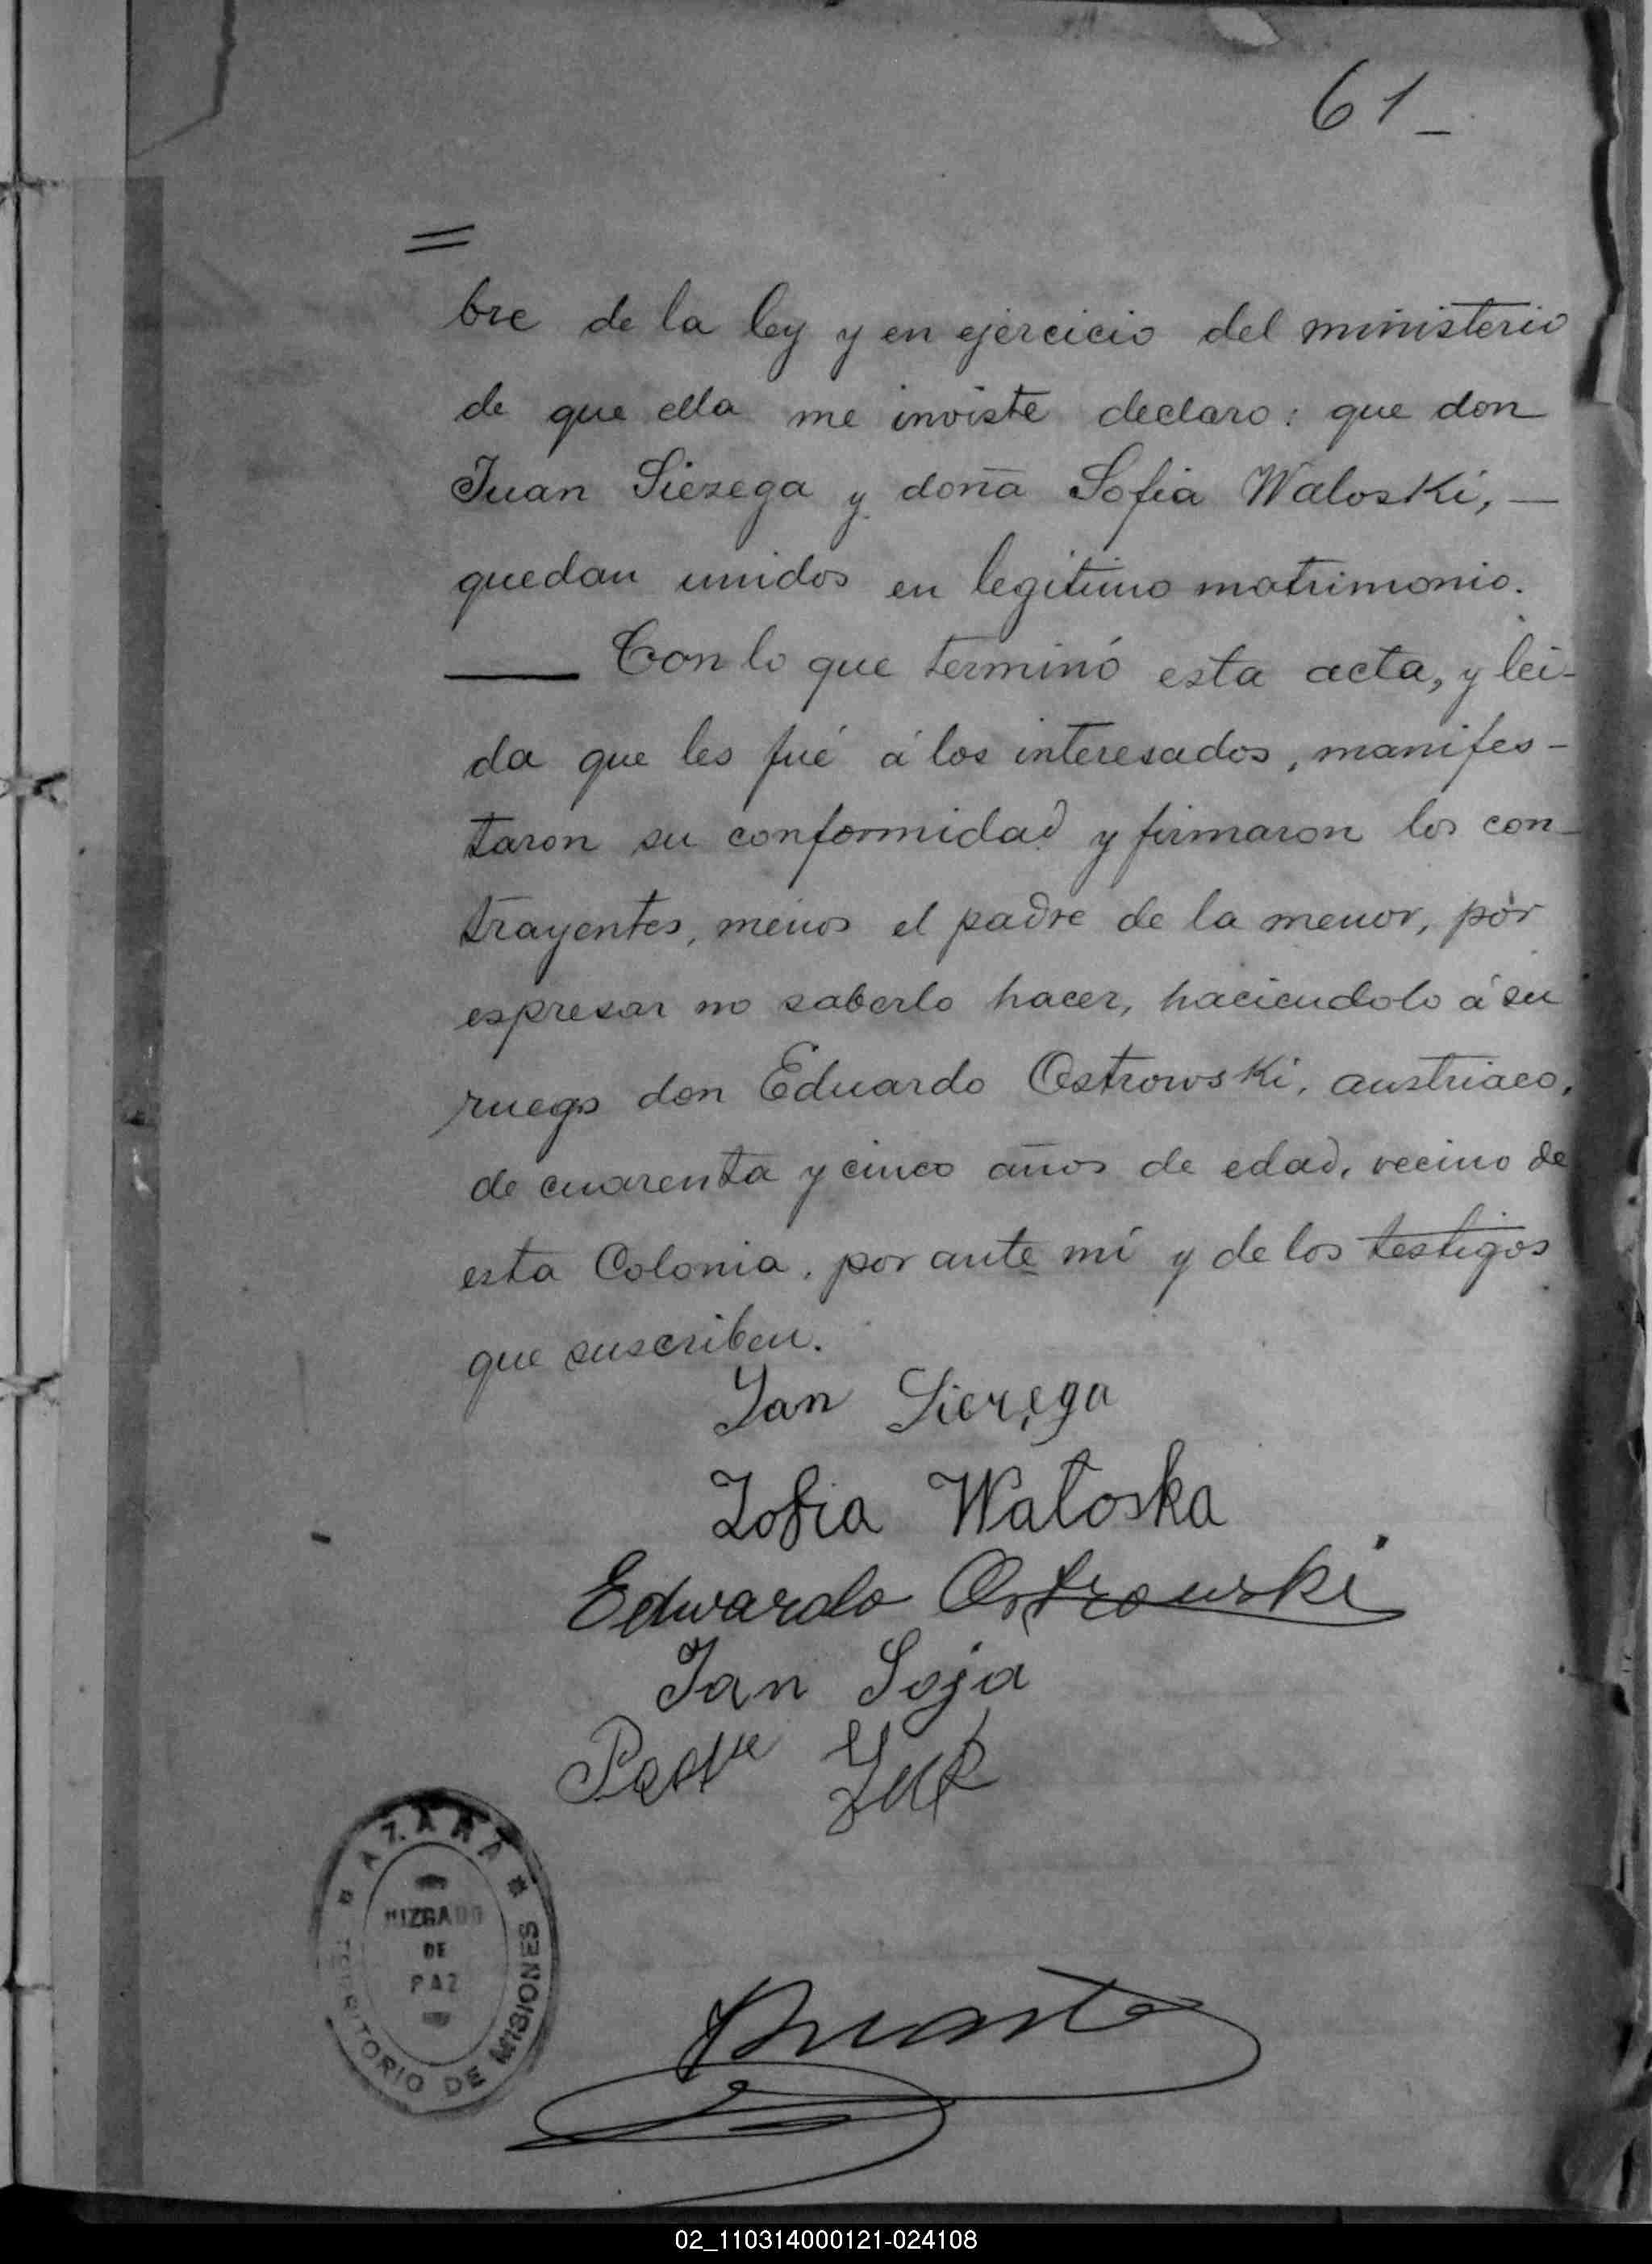 61_
=
bre de la ley y en ejercicio del ministerio
de que ella me inviste declaro: que don
Juan Sierega y doña Sofia Waloski, —
quedan unidos en legitimo matrimonio.
— Con lo que terminó esta acta, y lei-
da que les fué á los interesados, manifes-
taron su conformidad y firmaron los con-
trayentes, menos el padre de la menor, por
espresar no saberlo hacer, haciendolo á su
ruego don Eduardo Ostrowski, austriaco,
de cuarenta y cinco años de edad, vecino de
esta Colonia, por ante mí y de los testigos
que suscriben.
Jan Sieręga
Zofia Wałoska
Edwardo Ostrowski
Jan Soja
AZARA
JUZGADO
DE
PAZ
TERRITORIO DE MISIONES
02_110314000121-024108